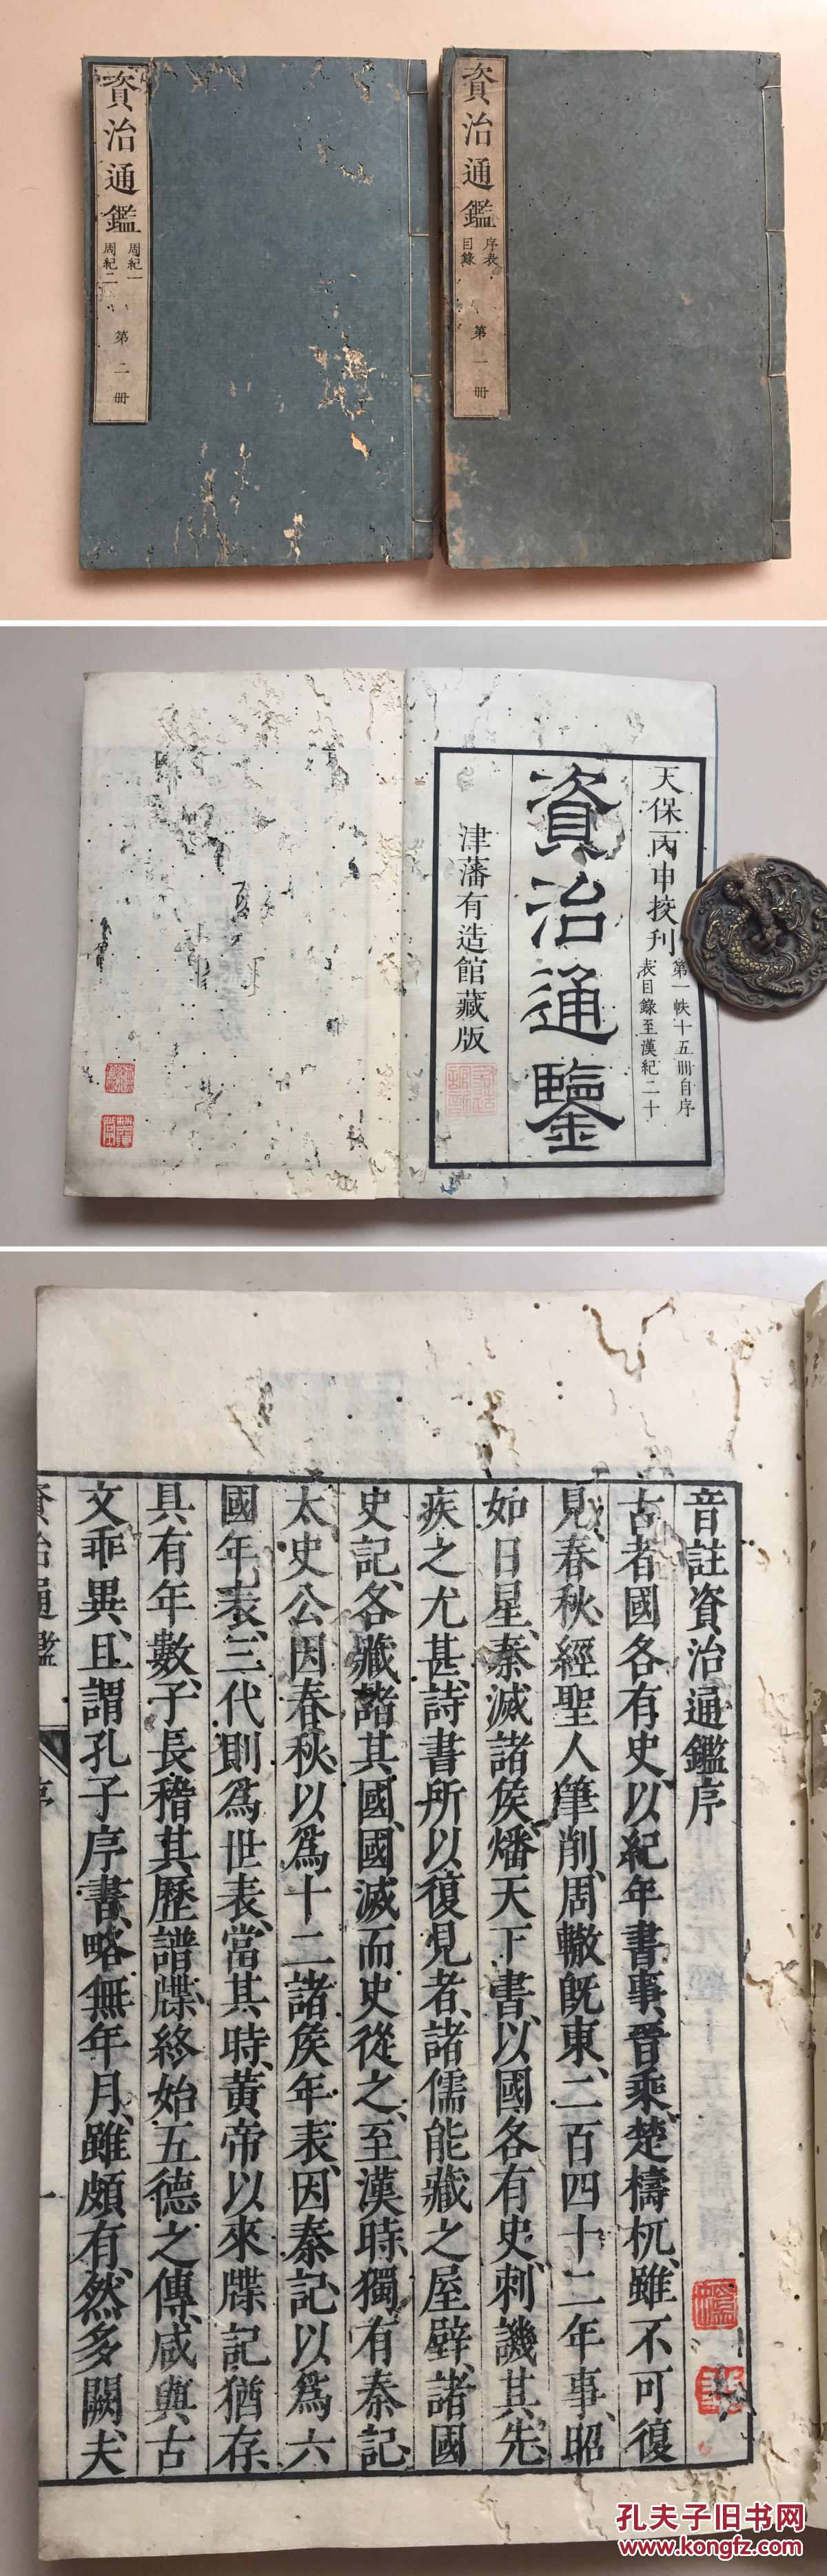 資治通鑑
序表
目錄
第一册
資治通鑑
周紀一
周紀二
第二册
天保丙申挍刋
第一帙十五冊自序
表目錄至漢紀二十
資治通鑒
津藩有造館藏版
音註資治通鑑序
古者國各有史、以紀年書事、晉乘楚檮杌、雖不可復
見、春秋經聖人筆削、周轍旣東、二百四十二年事、昭
如日星、秦滅諸侯、燔天下書、以國各有史、刺譏其先、
疾之尤甚、詩書所以復見者、諸儒能藏之屋壁、諸國
史記、各藏諸其國、國滅而史從之、至漢時、獨有秦記、
太史公因春秋以爲十二諸侯年表、因秦記以爲六
國年表、三代則爲世表、當其時、黃帝以來牒記猶存、
具有年數、子長稽其歷譜牒、終始五德之傳、咸與古
文乖異、且謂孔子序書、略無年月、雖頗有、然多闕、夫
資治通鑑
序
一
孔夫子旧书网
www.kongfz.com